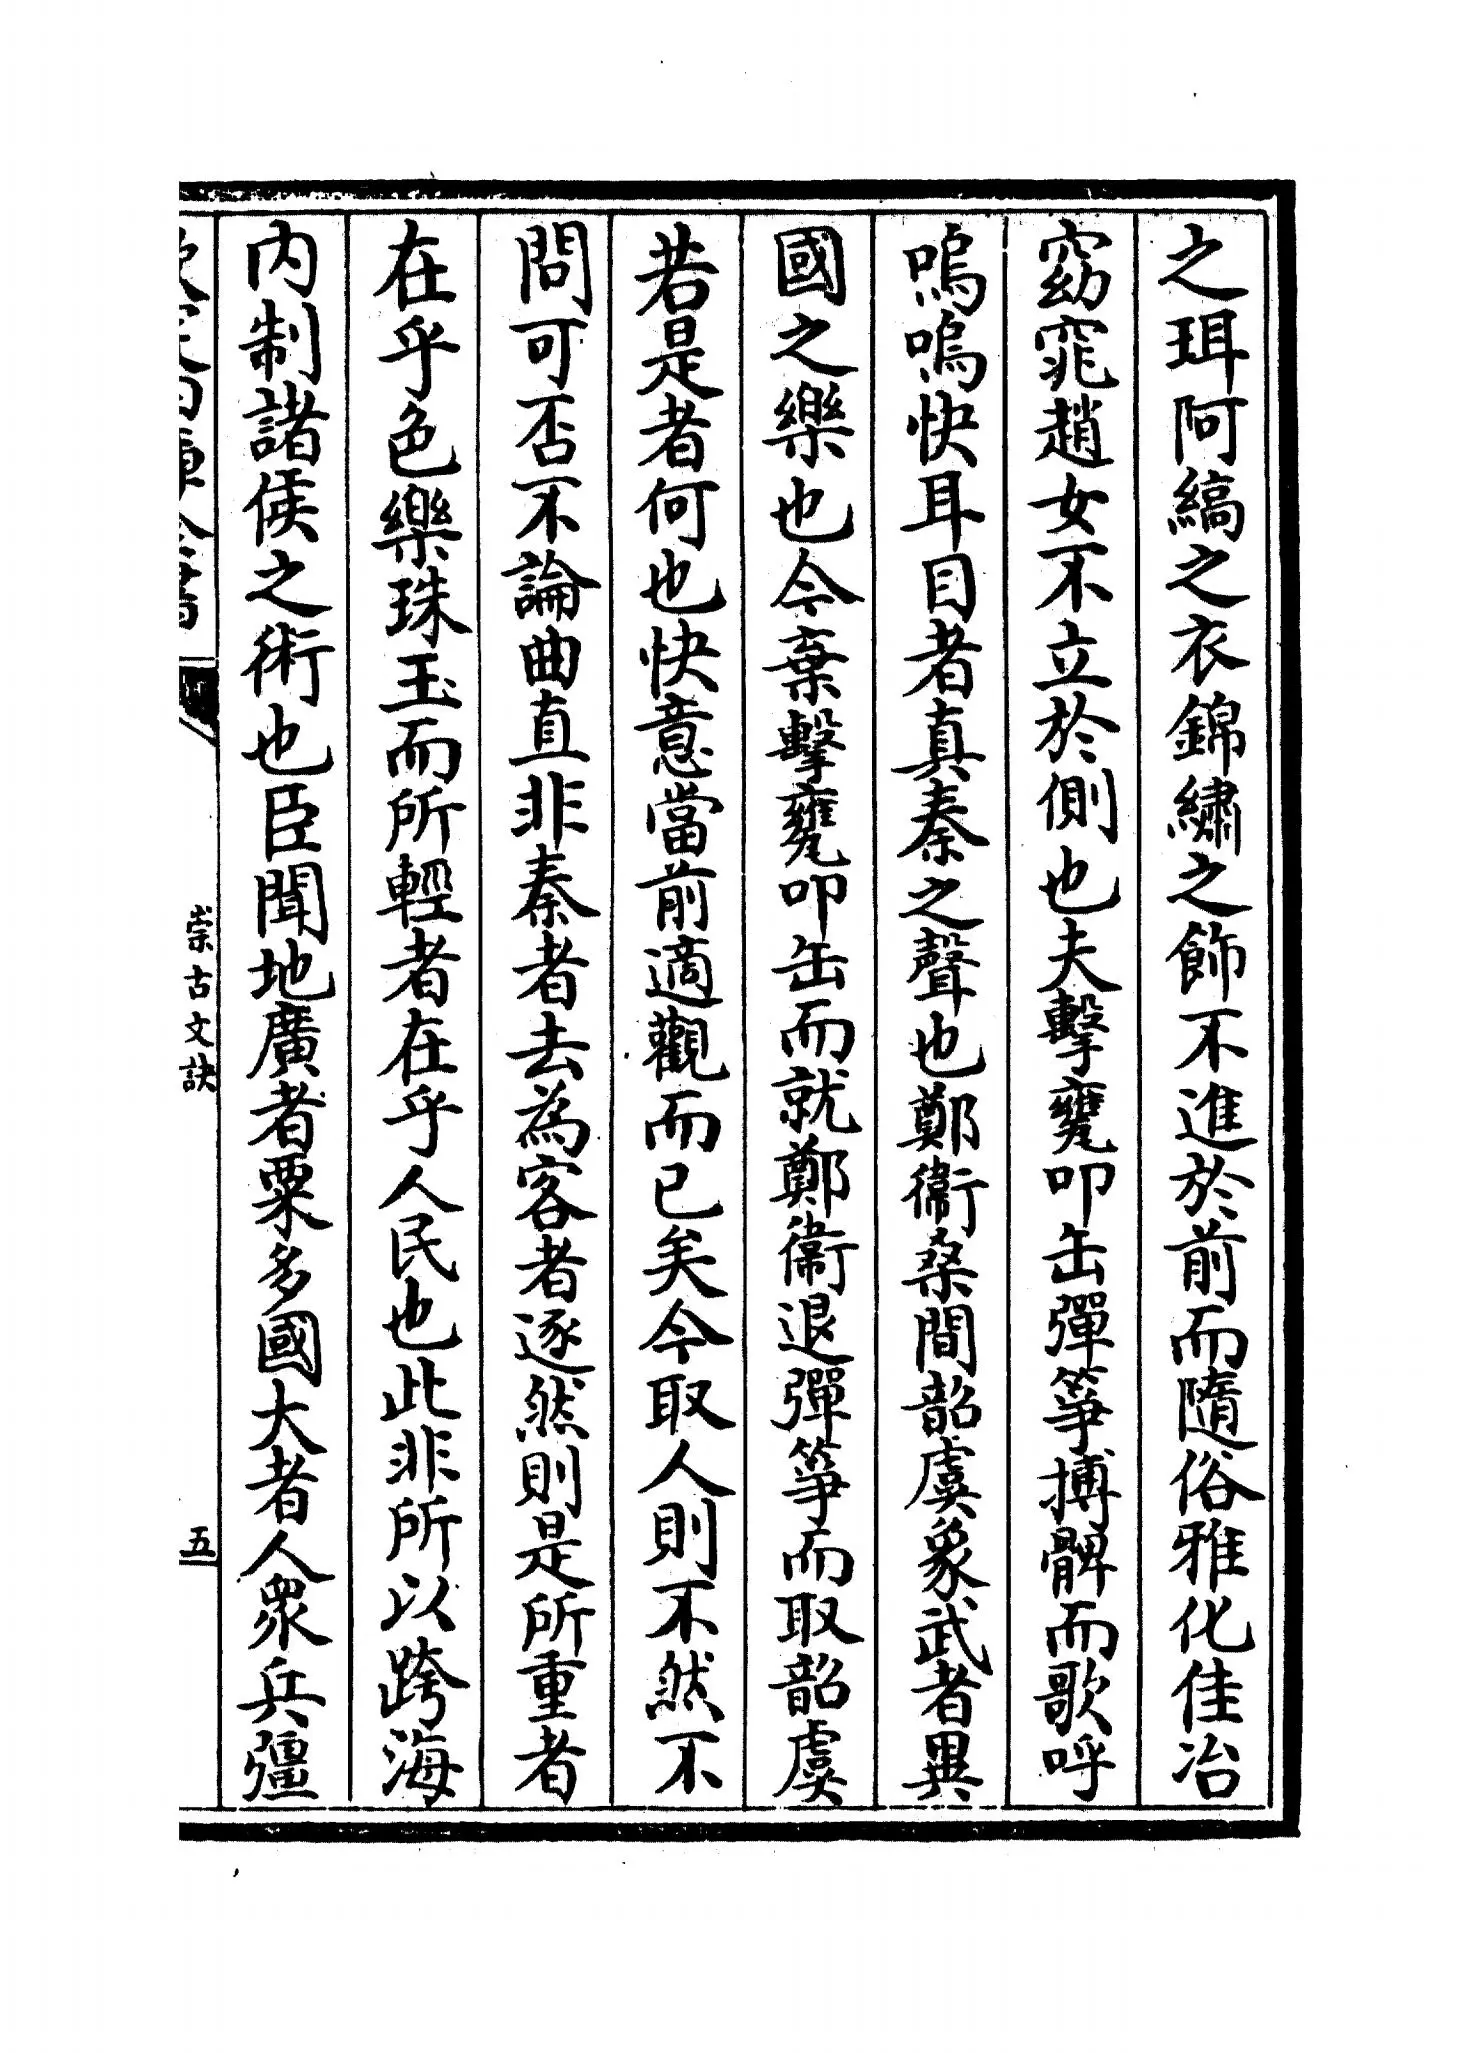 之珥阿縞之衣錦繡之飾不進於前而隨俗雅化佳冶
窈窕趙女不立於側也夫擊甕叩缶彈箏搏髀而歌呼
嗚嗚快耳目者真秦之聲也鄭衞桑間韶虞象武者異
國之樂也今棄擊甕叩缶而就鄭衞退彈箏而取韶虞
若是者何也快意當前適觀而已矣今取人則不然不
問可否不論曲直非秦者去為客者逐然則是所重者
在乎色樂珠玉而所輕者在乎人民也此非所以跨海
内制諸侯之術也臣聞地廣者粟多國大者人衆兵彊
欽定四庫全書
崇古文訣
五